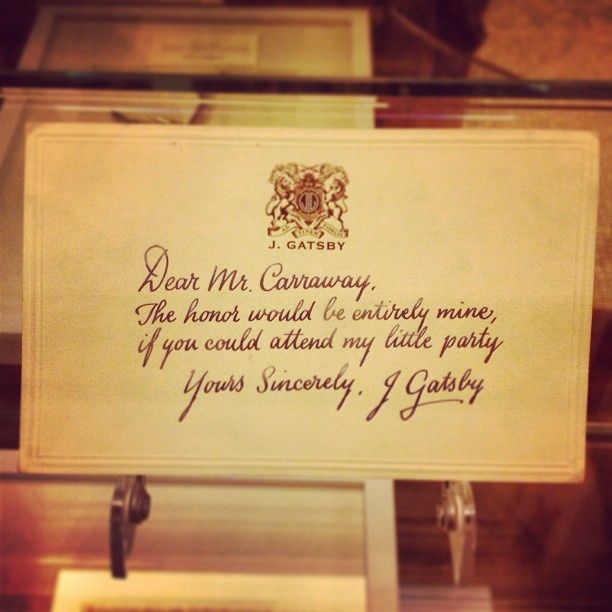 J. GATSBY
Dear Mr. Carraway,
The honor would be entirely mine,
if you could attend my little party
Yours Sincerely, J Gatsby